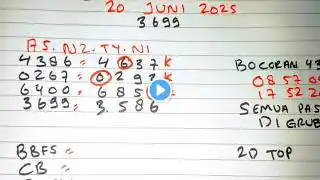 20 JUNI 2025
3699
AS. N2. TY. N1
4386 = 4637 K
0267 = 0293 K
6400 = 685
3699 = 3.586
BBFS =
CB =
BOCORAN 43
08 57 0
17 52 2
SEMUA PAS
DI GRUB
2D TOP